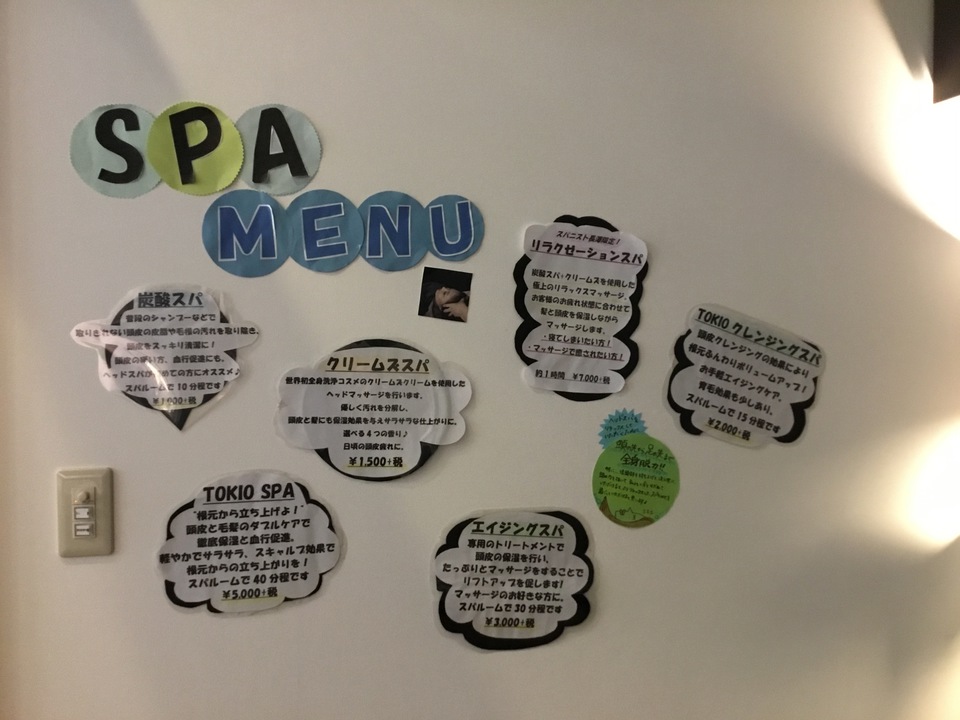 SPA
MENU
炭酸スパ
普段のシャンプーなどで
取りきれない頭皮の皮脂や毛根の汚れを取り除き、
頭皮をスッキリ清潔に！
頭皮の硬い方、血行促進にも、
ヘッドスパが初めての方にオススメ♪
スパルームで10分程です
クリームズスパ
世界初全身洗浄コスメのクリームズクリームを使用した
ヘッドマッサージを行います。
優しく汚れを分解し、
頭皮と髪にも保湿効果を与えサラサラな仕上がりに。
選べる4つの香り♪
日頃の頭皮疲れに。
￥1,500+税
スパニスト長瀬限定！
リラクゼーションスパ
炭酸スパ・クリームズを使用した
極上のリラックスマッサージ。
お客様のお疲れ状態に合わせて
髪と頭皮を保湿しながら
マッサージします。
・寝てしまいたい方！
・マッサージで癒されたい方！
約1時間 ￥7,000+税
TOKIO クレンジングスパ
頭皮クレンジングの効果により
根元ふんわりボリュームアップ！
お手軽エイジングケア。
育毛効果も少しあり。
スパルームで15分程です
￥2,000+税
TOKIO SPA
"根元から立ち上げよ！"
頭皮と毛髪のダブルケアで
徹底保湿と血行促進、
軽やかでサラサラ、スキャルプ効果で
根元からの立ち上がりを！
スパルームで40分程です
￥5,000+税
エイジングスパ
専用のトリートメントで
頭皮の保湿を行い、
たっぷりとマッサージをすることで
リフトアップを促します！
マッサージのお好きな方に。
スパルームで30分程です
￥3,000+税